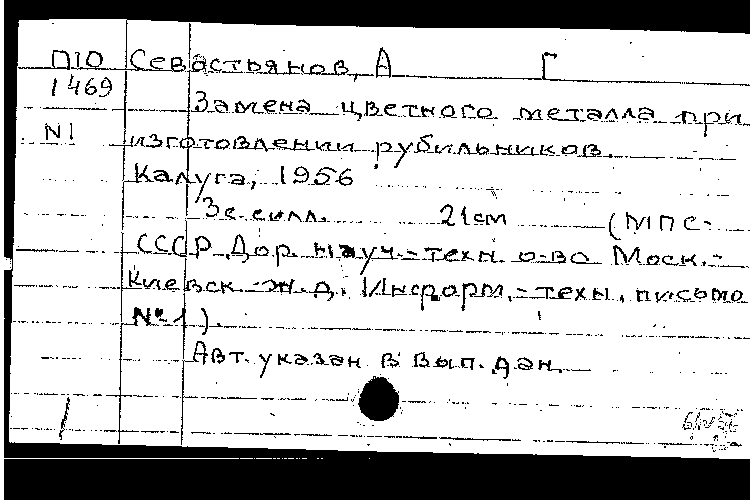 П10 Севастьянов, А Г
1469
Замена цветного металла при
N1 изготовлении рубильников.
Калуга, 1956
3с. илл. 21см (МПС-
СССР. Дор. науч.-техн. о-во Моск.-
Киевск. ж.д. Информ.-техн. письмо
№1).
Авт. указан в вып. дан.